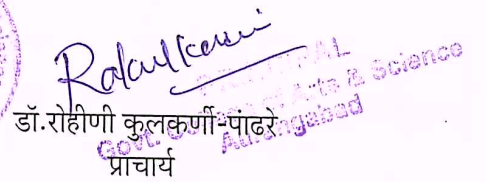 PRINCIPAL
Govt. College of Arts & Science
Aurangabad
डॉ.रोहीणी कुलकर्णी-पांढरे
प्राचार्य